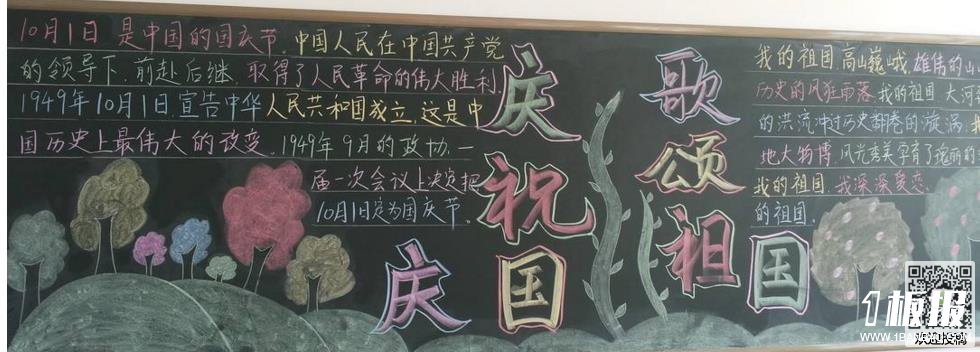 10月1日是中国的国庆节.中国人民在中国共产党
的领导下,前赴后继,取得了人民革命的伟大胜利
1949年10月1日,宣告中华人民共和国成立,这是中
国历史上最伟大的改变.1949年9月的政协,一
届一次会议上决定把
10月1日定为国庆节.
庆祝国庆
歌颂祖国
我的祖国高山巍峨,雄伟的山
历史的风狂雨落,我的祖国 大河
的洪流冲过历史翻卷的漩涡.
地大物博,风光秀美孕育了瑰丽的
我的祖国.我深深爱恋
的祖国.
1板报
欢迎投稿